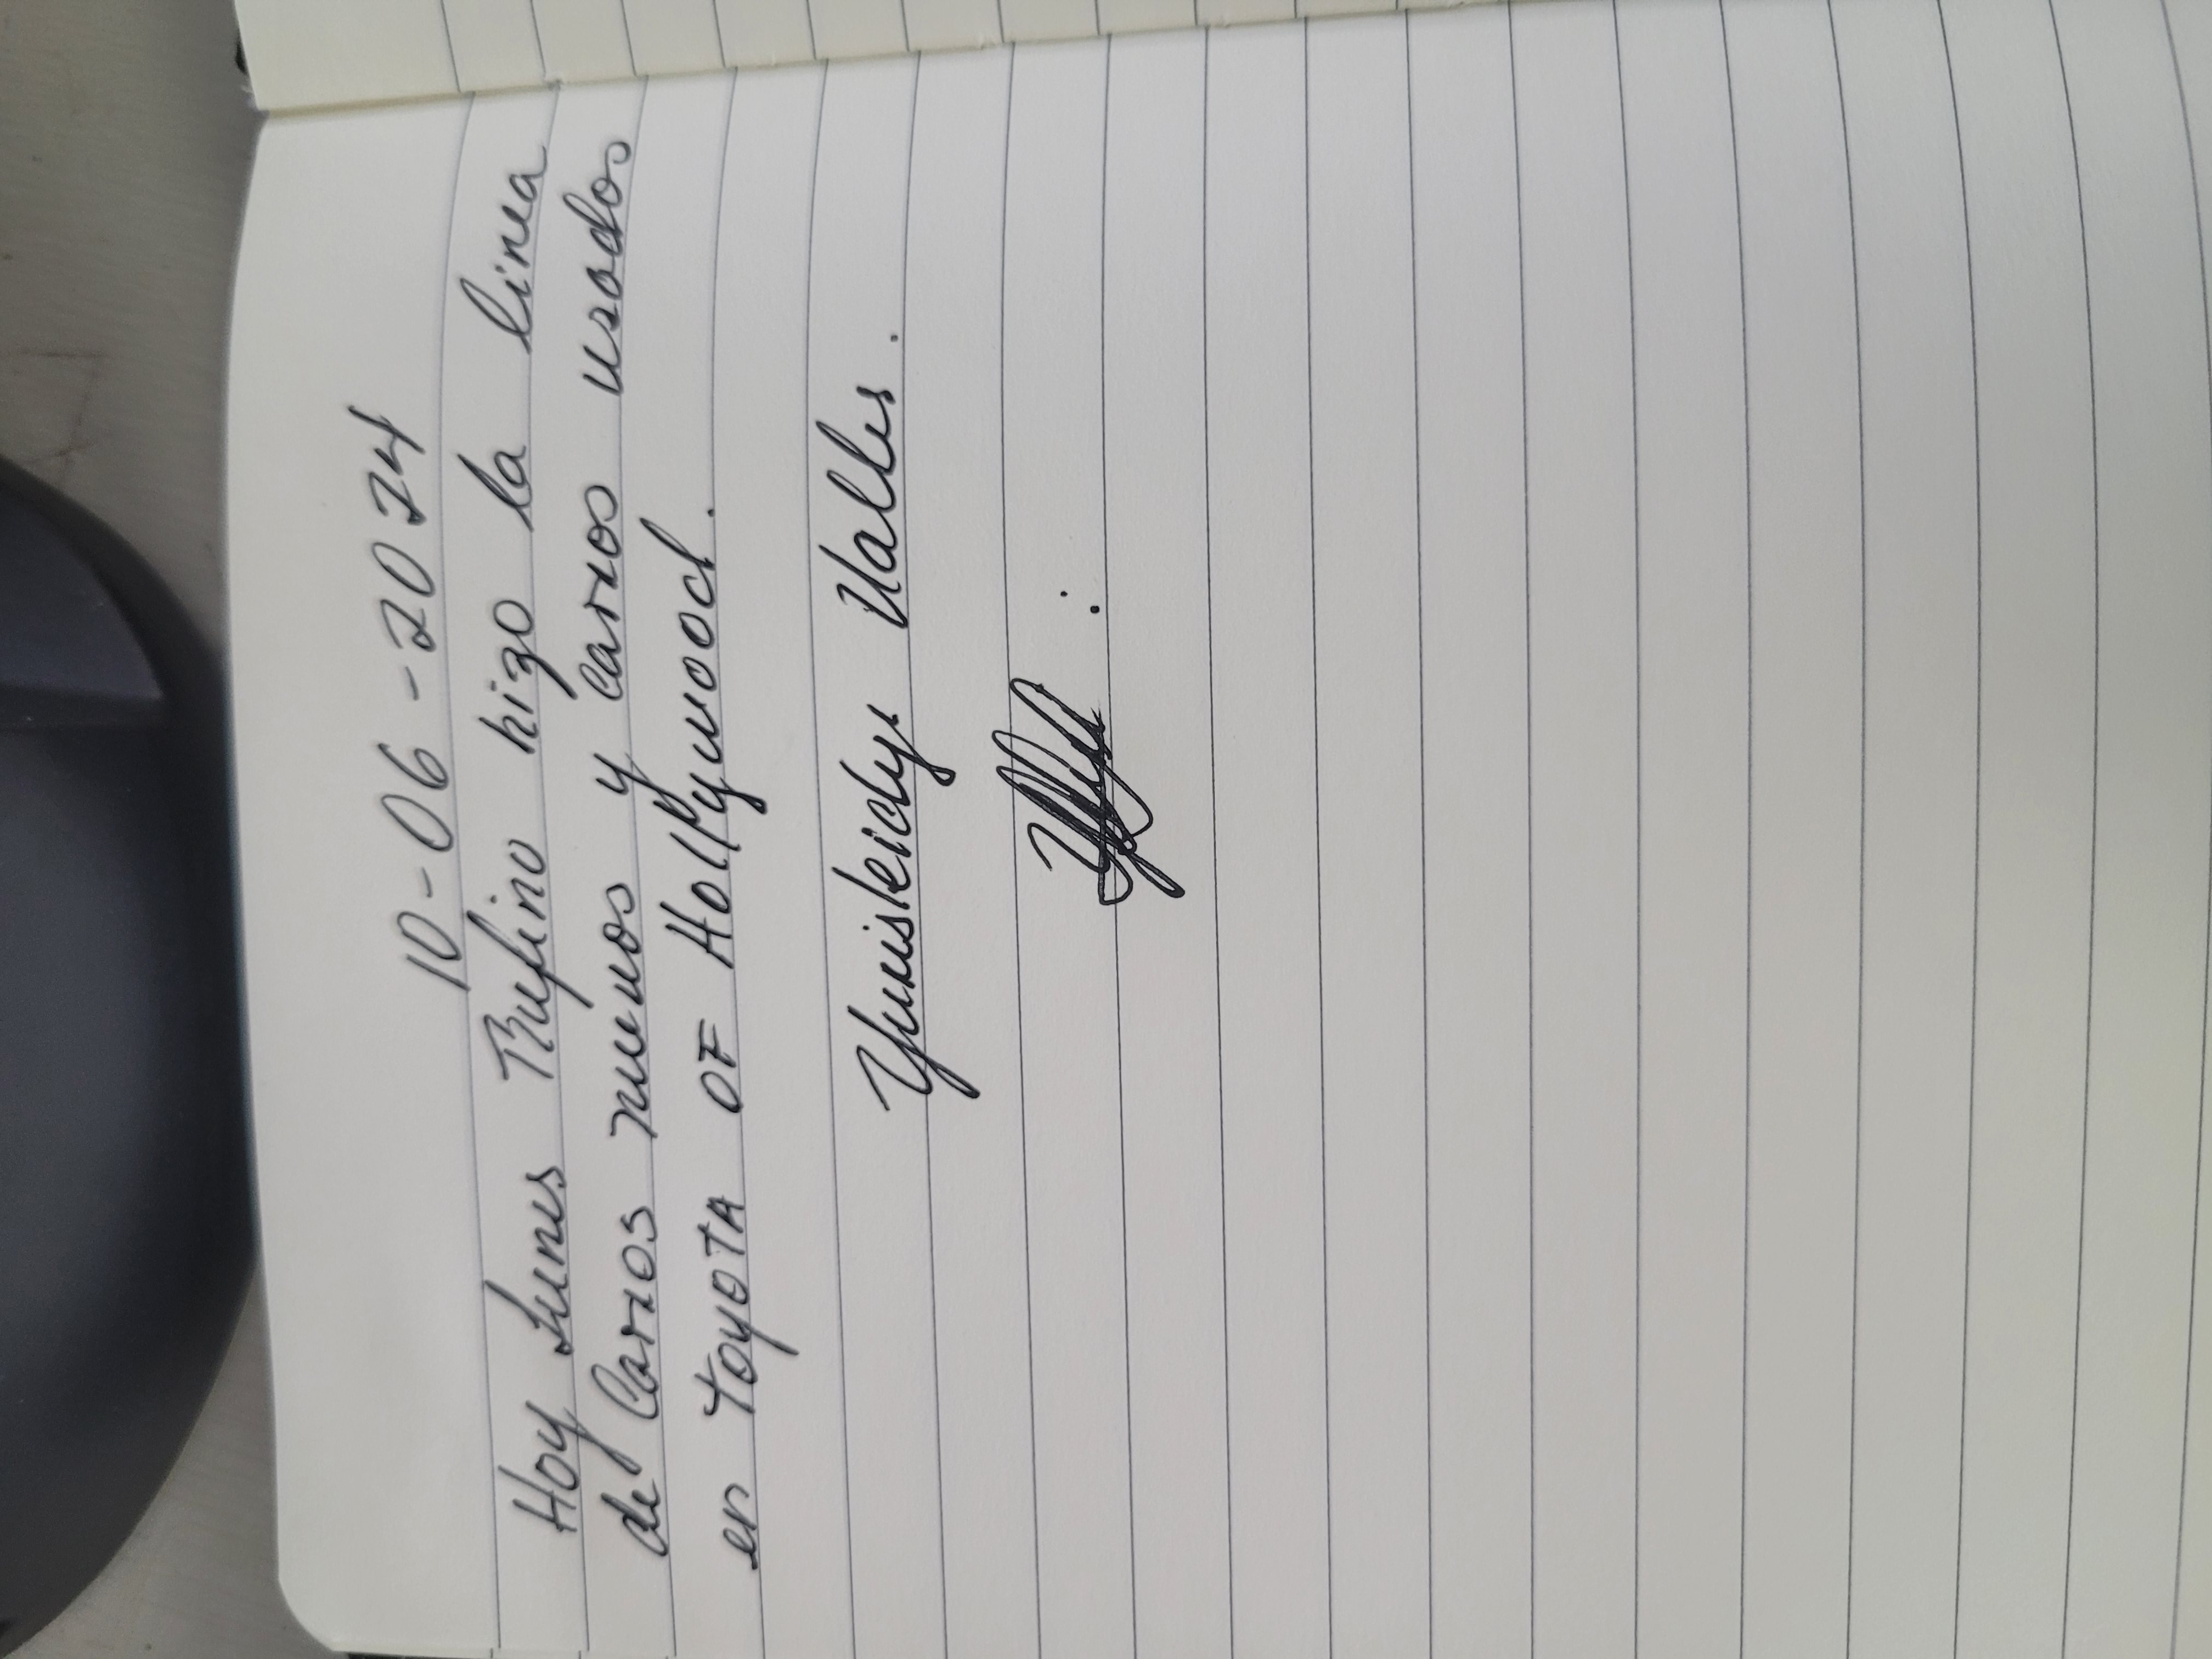 10-06-2024
Hoy Lunes Rufino hizo la linea
de Carros nuevos y carros usados
en TOYOTA OF Hollywood.
Yunisleidys Valles.